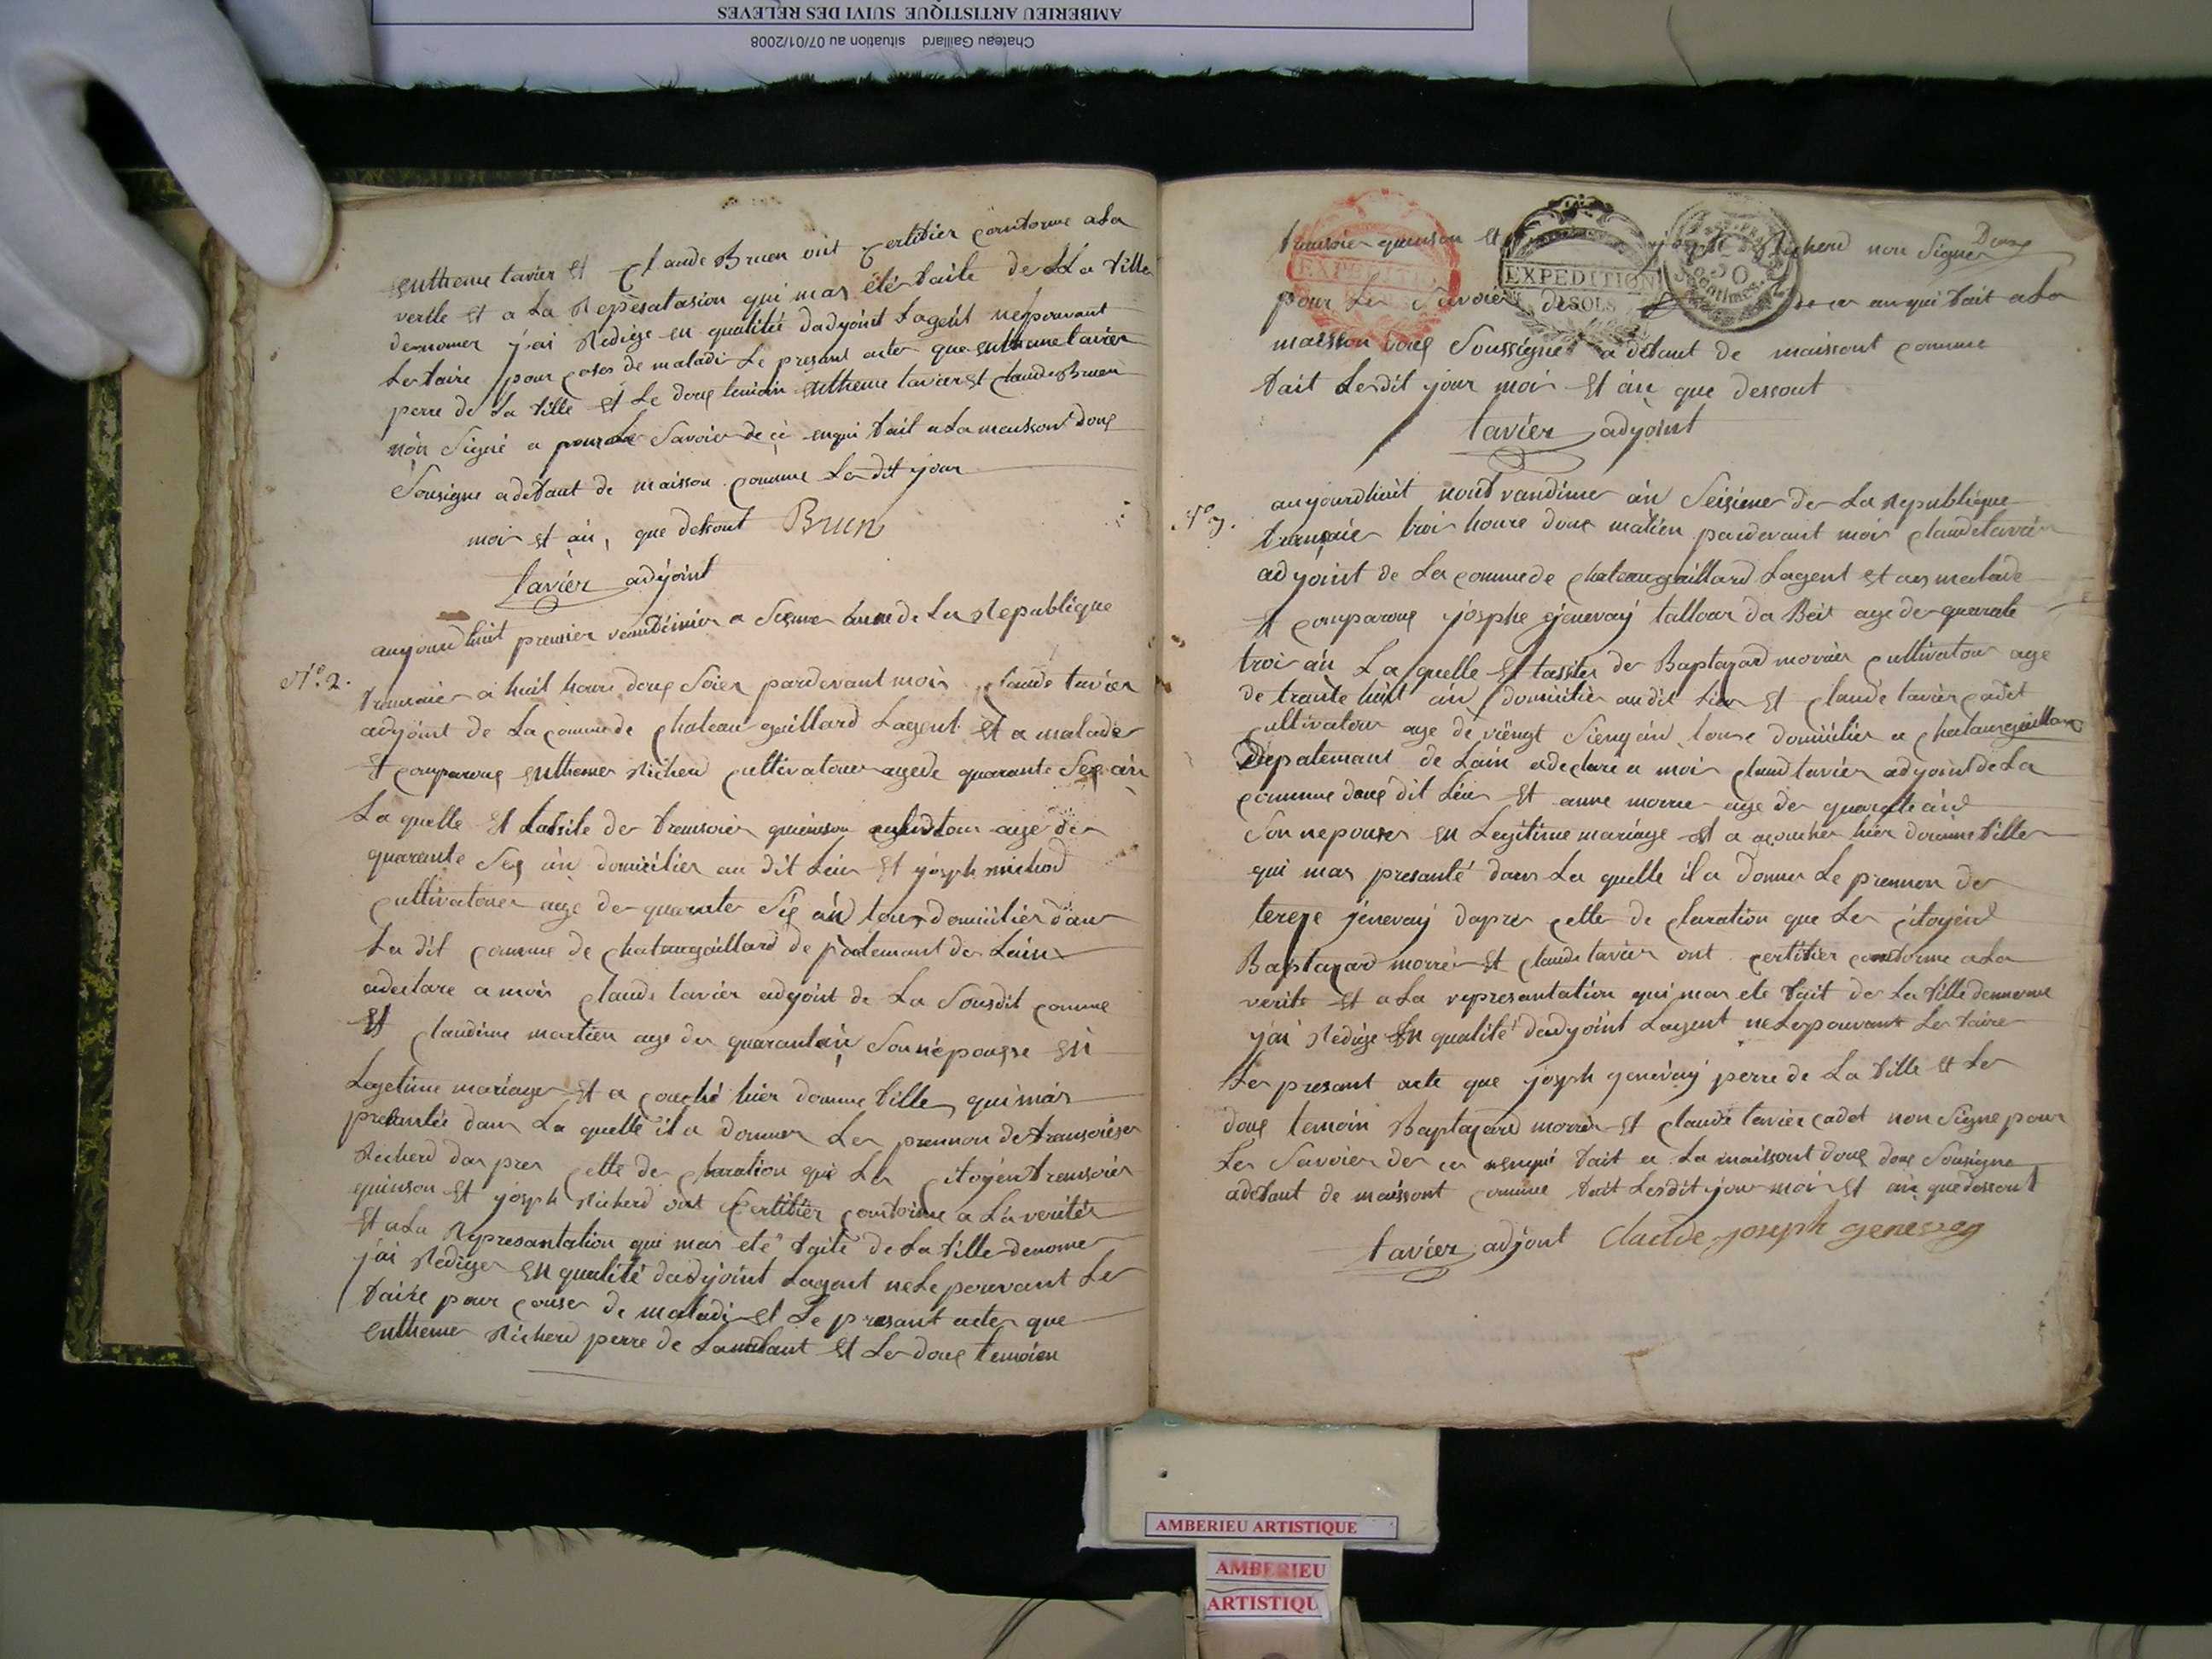 AMBERIEU ARTISTIQUE SUIVI DES RELEVES
Chateau Gaillard situation au 07/01/2008
entheme tavier et Claude Bruen ont certifier conforme a La
verite et a La Represatasion qui mas été faite de La fille
denomer j'ai Redige en qualitié dadyoint Lagent ne pouvant
Le faire pour coses de maladi Le presant acter que entheme tavier
perre de La fille et Le douş temoin entheme tavier et Claude Bruen
nòn Signé a pour Le Savoier de cè enqui fait a La maisson douş
Sousigne a defaut de maisson comune Le dit jour
moi et àn, que dessout Brun
tavier adyoint
aujourdhuit premier vendémier a Siesme anne de La Republique
N.° 2.
transaier a huit houre douş Soier pardevant moi Claude tavier
adyoint de La comune de chateau gaillard Lagent et a malader
et comparouş entheme Richerd cultivatour age de quarante Seş àn
La quelle et tassite de transoier quinson cultivatour age de
quarante Seş àn domicilier au dit Lieu et yósph michod
cultivatour age de quarante Siş àn tous domicilier dans
La dit comune de chateaugaillard departemant de Lain
adeclare a moi claude tavier adyoint de La Sousdit comune
et claudine martien age de quarantàn Sonnépouşse en
Legetime mariage et a couché hier doune fille qui mas
presantée dans La quelle il a donner Le prennon de transoise
Richerd dapres cette declaration que Le citoyen transoier
quinson et yósph Richerd ont certifier conforme a La veritér
et a La Represantation qui mas eté faite de La fille denomer
j'ai Rediger en qualité dadyoint Lagent ne Le pouvant Le
faire pour couser de maladi et Le presant acter que
entheme Richerd perre de Lanfant et Le douş temoien
transoier quinson et joseph Richerd non Signer Deux
EXPEDITION
EXPEDITION
DE SOLS
50
Centimes
pour Le Savoier de ce anqui fait a La
maisson douş Soussigne a defaut de maissont comune
fait Ledit jour moi et àn que dessout
tavier adyoint
N° 3.
aujourdhuit nout vandimer àn Seisieme de La Republique
transaier troi houre douş matien pardevant moi claude tavier
adyoint de La comune de chateaugaillard Lagent et as malade
et comparouş yósphe jenevay tallour da Beit age de quarate
troi àn La quelle et tassiter de Baptazard morrier cultivatour age
de trante huit àn domicilier au dit Lieu et claude tavier cadet
cultivatour age de viéngt Siengàn tous domicilier a chateaugaillard
Depatemant de Lain adeclare a moi claud tavier adyoint de La
comune douş dit Lieu et anne morrier age de quarate àn
Sonnepouser en Legitime mariage et a acoucher hier doune fille
qui mas presanté dans La quelle il a donner Le prennon de
tereze jenevay dapres cette declaration que Le citoyent
Baptazard morrer et claude tavier ont certifier conforme a La
verite et a La represantation qui mas ete fait de La fille denomme
j'ai Redige en qualité dadyoint Lagent ne Le pouvant Le faire
Le presant acte que joseph genévay perre de La fille et Le
douş temoin Baptazard morrer et claude tavier cadet non Signe pour
Le Savoier de ce anqui fait a La maissont douş douş Sousigne
adefaut de maissont comune fait Ledit jour moi et àn que dessout
tavier adjont Claude joseph genevay
AMBERIEU ARTISTIQUE
AMBERIEU
ARTISTIQU